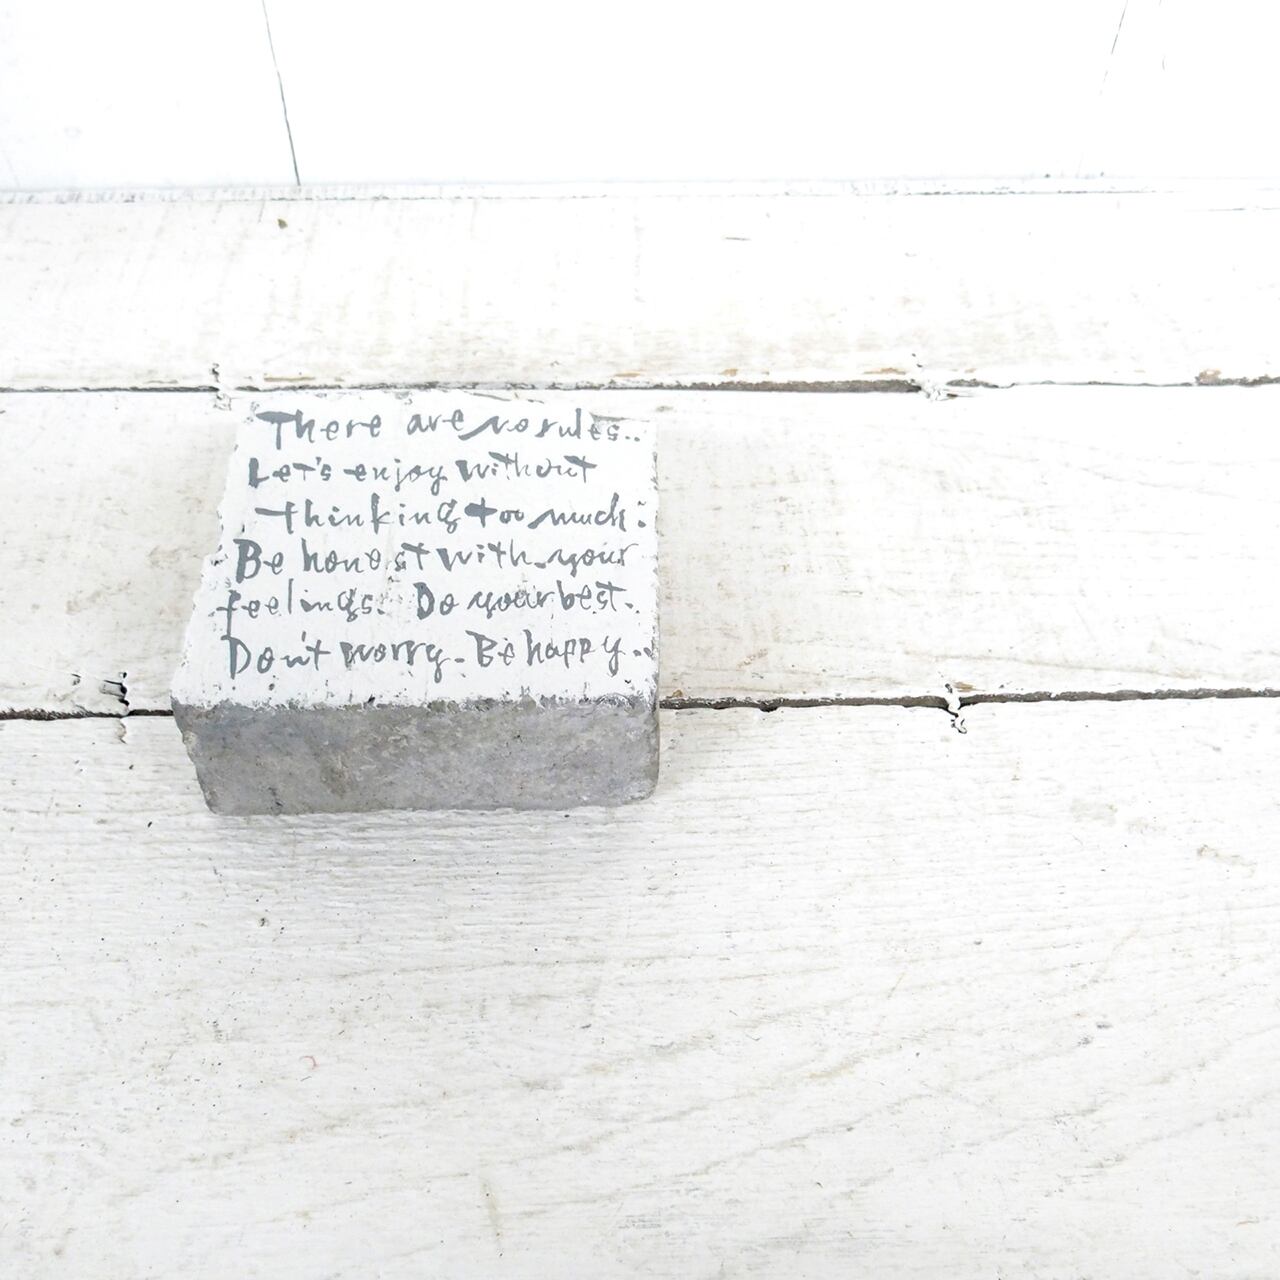 There are no rules..
Let's enjoy without
thinking too much.
Be honest with your
feelings. Do your best.
Don't worry. Be happy..